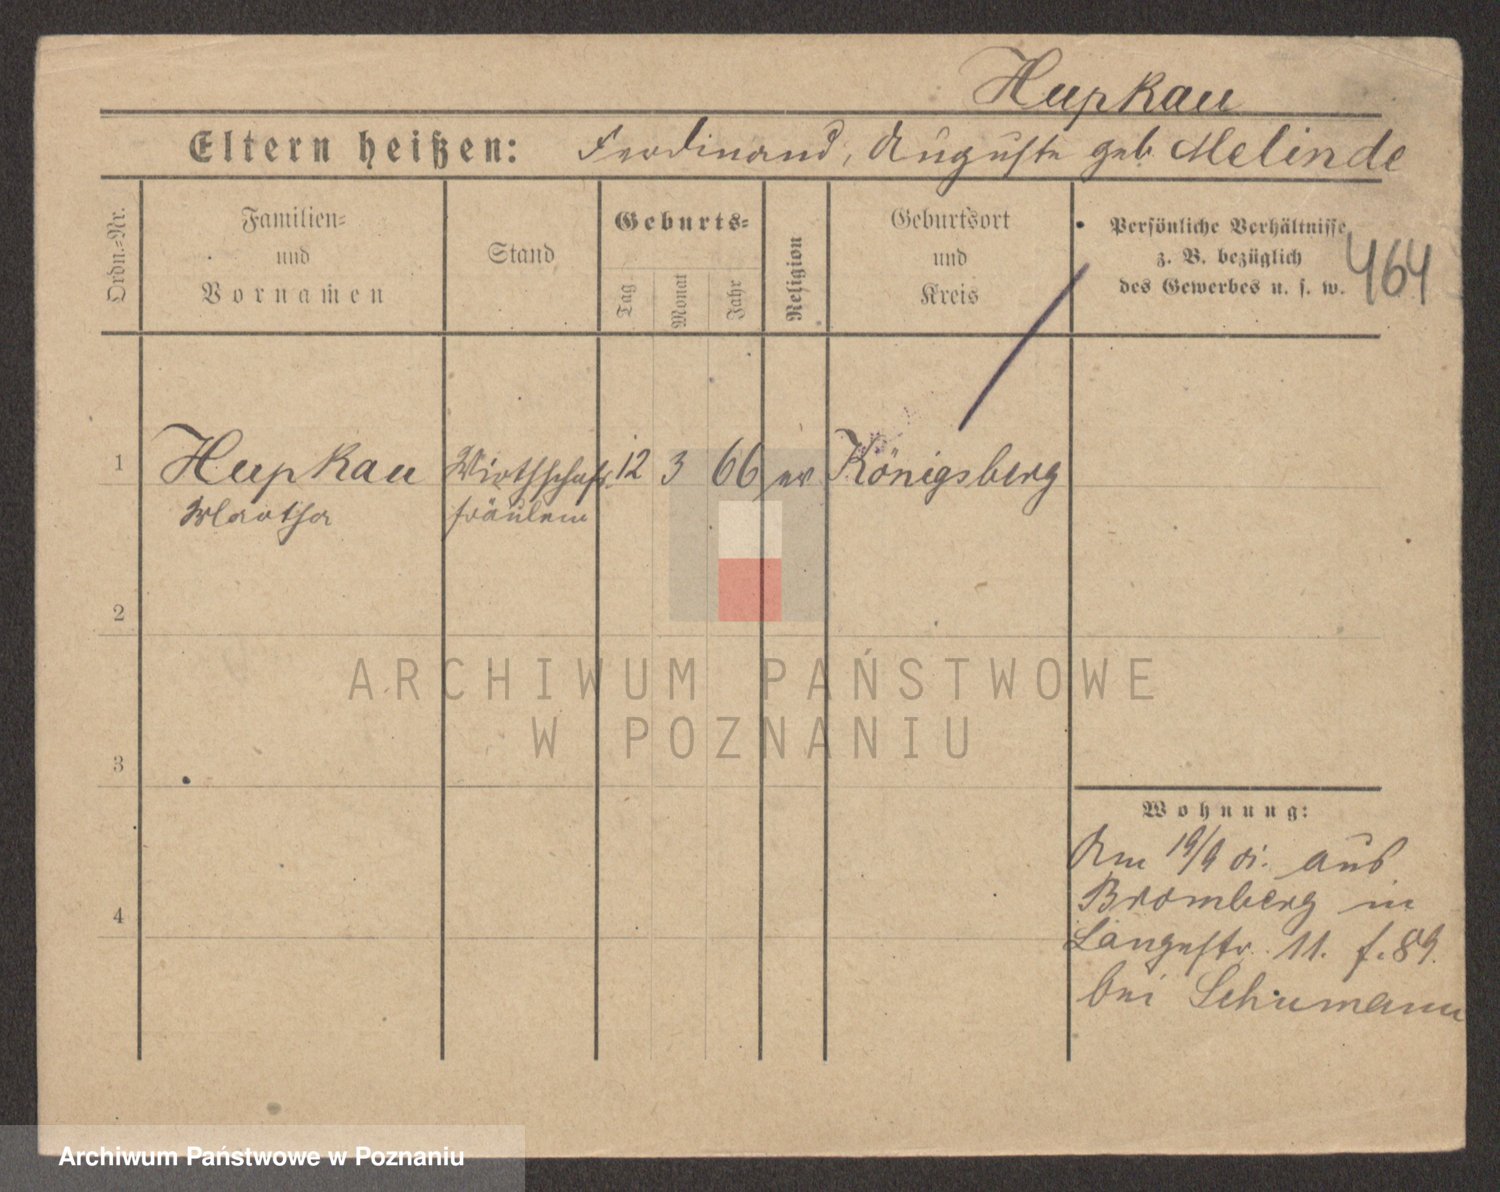 Hupkau
Eltern heißen: Ferdinand, Auguste geb. Melinde
Ordn.=Nr.
Familien=
und
Vornamen
Stand
Geburts=
Tag
Monat
Jahr
Religion
Geburtsort
und
Kreis
Persönliche Verhältnisse
z. B. bezüglich
des Gewerbes u. s. w.
464
1 Hupkau Wirthschafts 12 3 66 ev Königsberg
Martha fräulein
2
3
4
ARCHIWUM PAŃSTWOWE
W POZNANIU
Wohnung:
Am 19/9 aus
Bromberg in
Langestr. 11. f. 89.
bei Schumann
Archiwum Państwowe w Poznaniu